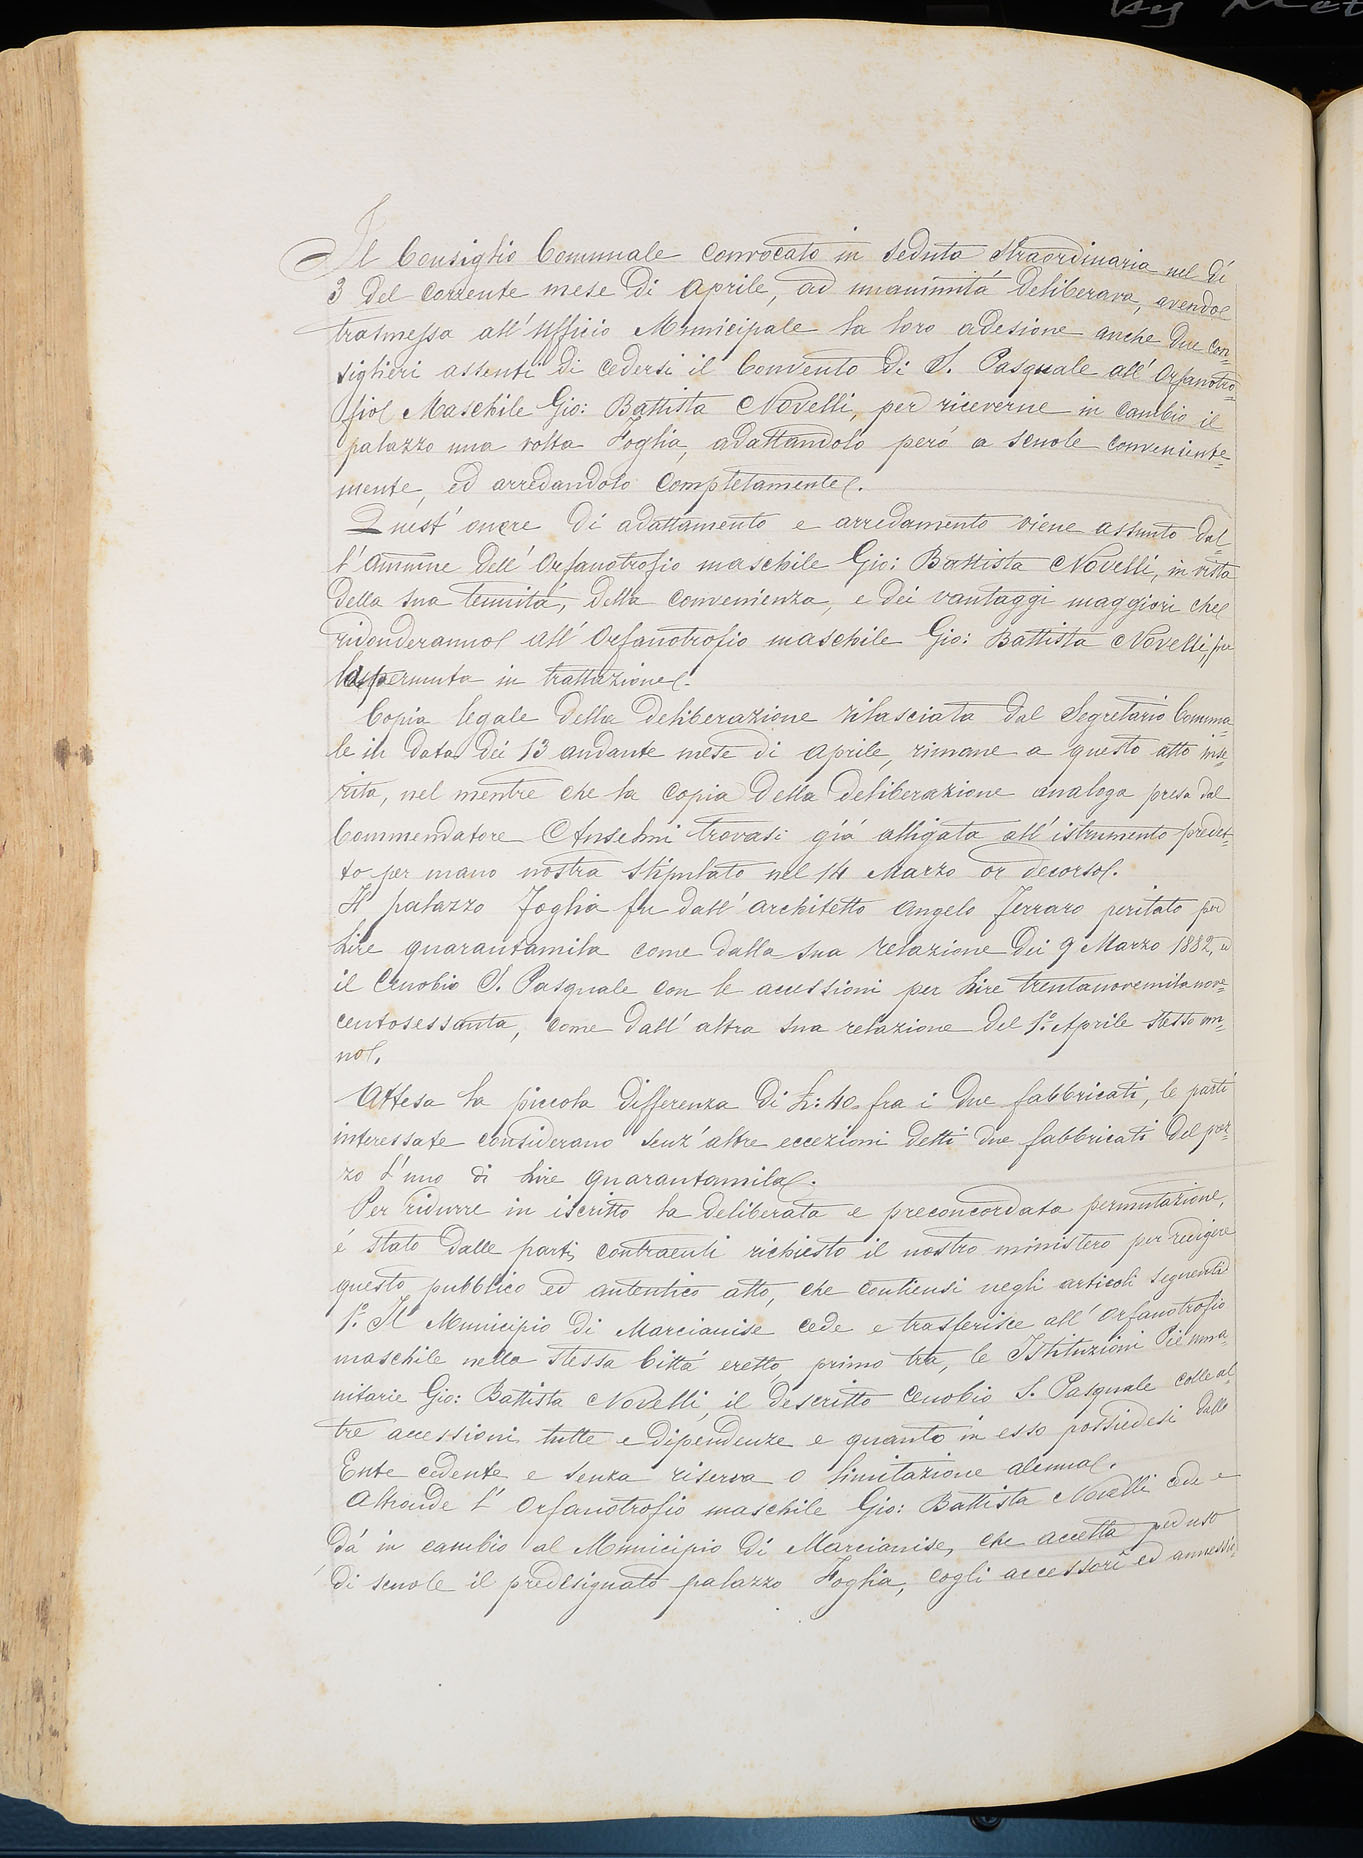 Il Consiglio Comunale convocato in seduta straordinaria nel dí
3 del corrente mese di Aprile, ad unanimitá deliberava, avendo
trasmessa all'ufficio Municipale la loro adesione anche due con=
siglieri assenti di cedersi il Convento di S. Pasquale all'Orfanotro=
fio Maschile Gio: Battista Novelli, per riceverne in cambio il
palazzo una volta Foglia, adattandolo peró a scuole conveniente=
mente, ed arredandolo completamente.
Quest'onere di adattamento e arredamento viene assunto dal=
l'Ammne dell'Orfanotrofio maschile Gio: Battista Novelli, in vista
della sua tenuitá, della convenienza, e dei vantaggi maggiori che
ridonderanno all'Orfanotrofio maschile Gio: Battista Novelli, per
la permuta in trattazione.
Copia legale della deliberazione rilasciata dal Segretario Comuna=
le in data dei 13 andante mese di Aprile, rimane a questo atto inse=
rita, nel mentre che la copia della deliberazione analoga presa dal
Commendatore Anselmi trovasi giá alligata all'istrumento predet=
to per mano nostra stipulato nel 14 Marzo or decorso.
Il palazzo Foglia fu dall'architetto Angelo Ferraro peritato per
Lire quarantamila come dalla sua relazione dei 9 Marzo 1882, e
il Cenobio S. Pasquale con le accessioni per Lire trentanovemilanove=
centosessanta, come dall'altra sua relazione del 1º Aprile stesso an=
no.
Attesa la piccola differenza di L: 40 fra i due fabbricati, le parti
interessate considerano senz'altre eccezioni detti due fabbricati del prez=
zo l'uno di Lire quarantamila.
Per ridurre in iscritto la deliberata e preconcordata permutazione,
é stato dalle parti contraenti richiesto il nostro ministero per redigere
questo pubblico ed autentico atto, che contiensi negli articoli seguenti
1º Il Municipio di Marcianise cede e trasferisce all'Orfanotrofio
maschile nella stessa Cittá eretto, primo tra, le Istituzioni Pie uma=
nitarie Gio: Battista Novelli, il descritto Cenobio S. Pasquale colle al=
tre accessioni tutte e dipendenze e quanto in esso possiedesi dallo
Ente cedente e senza riserva o limitazione alcuna.
Altronde l'Orfanotrofio maschile Gio: Battista Novelli cede e
dá in cambio al Municipio di Marcianise, che accetta per uso
di scuole il predesignato palazzo Foglia, cogli accessorî ed annessio=